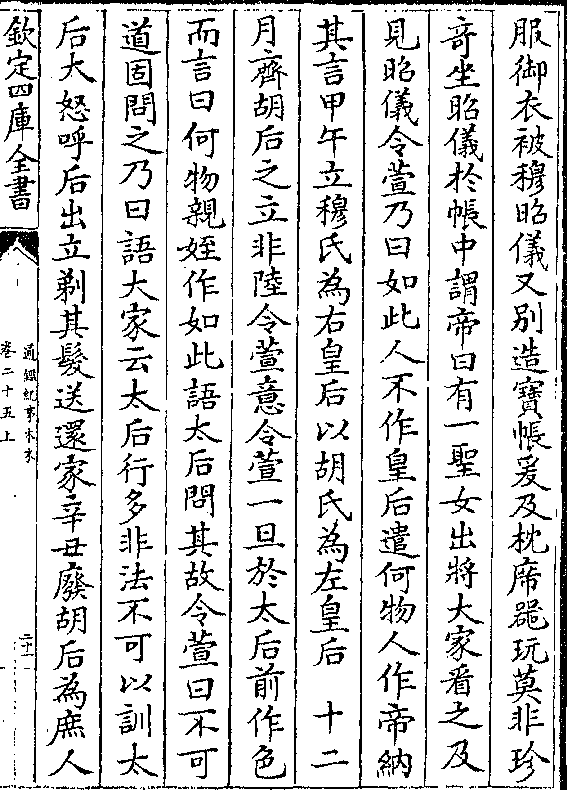 服御衣被穆昭儀又别造寳帳爰及枕席噐玩莫非珍
竒坐昭儀於帳中謂帝曰有一聖女出將大家看之及
見昭儀令萱乃曰如此人不作皇后遣何物人作帝納
其言甲午立穆氏為右皇后以胡氏為左皇后　十二
月齊胡后之立非陸令萱意令萱一旦於太后前作色
而言曰何物親姪作如此語太后問其故令萱曰不可
道固問之乃曰語大家云太后行多非法不可以訓太
后大怒呼后出立剃其髮送還家辛丑廢胡后為庶人
欽定四庫全書
通鑑紀事本末
卷二十五上